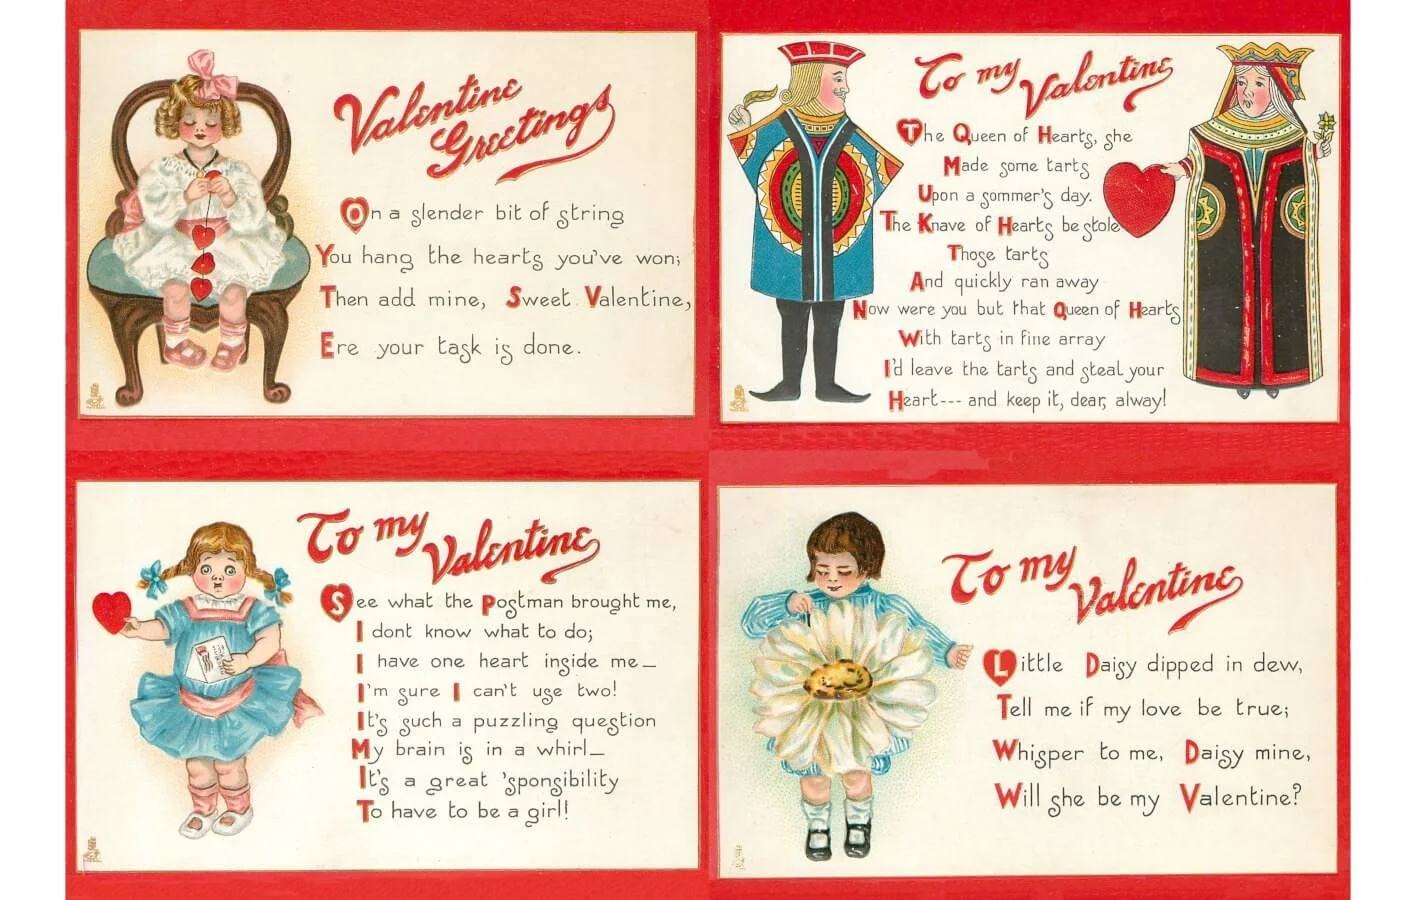 Valentine
Greetings
On a slender bit of string
You hang the hearts you've won;
Then add mine, Sweet Valentine,
Ere your task is done.
To my Valentine
The Queen of Hearts, she
Made some tarts
Upon a sommer's day.
The Knave of Hearts he stole
Those tarts
And quickly ran away
Now were you but that Queen of Hearts
With tarts in fine array
I'd leave the tarts and steal your
Heart--- and keep it, dear, alway!
To my Valentine
See what the Postman brought me,
I dont know what to do;
I have one heart inside me—
I'm sure I can't use two!
It's such a puzzling question
My brain is in a whirl—
It's a great 'sponsibility
To have to be a girl!
To my Valentine
Little Daisy dipped in dew,
Tell me if my love be true;
Whisper to me, Daisy mine,
Will she be my Valentine?